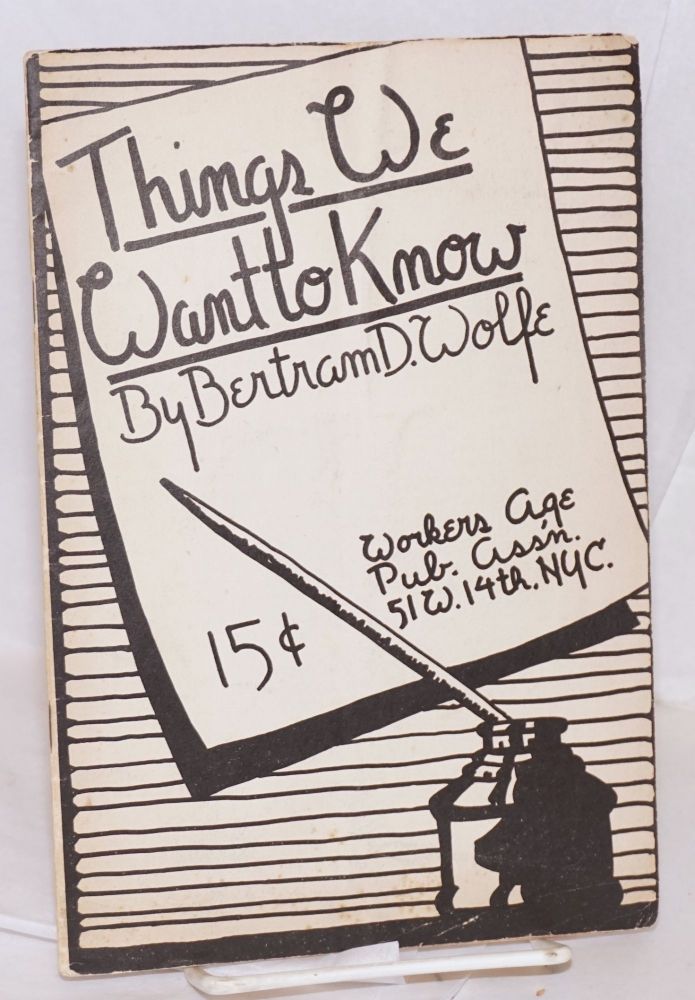 Things We
Want to Know
By Bertram D. Wolfe
Workers Age
Pub. Ass'n.
51 W. 14th. NYC.
15¢